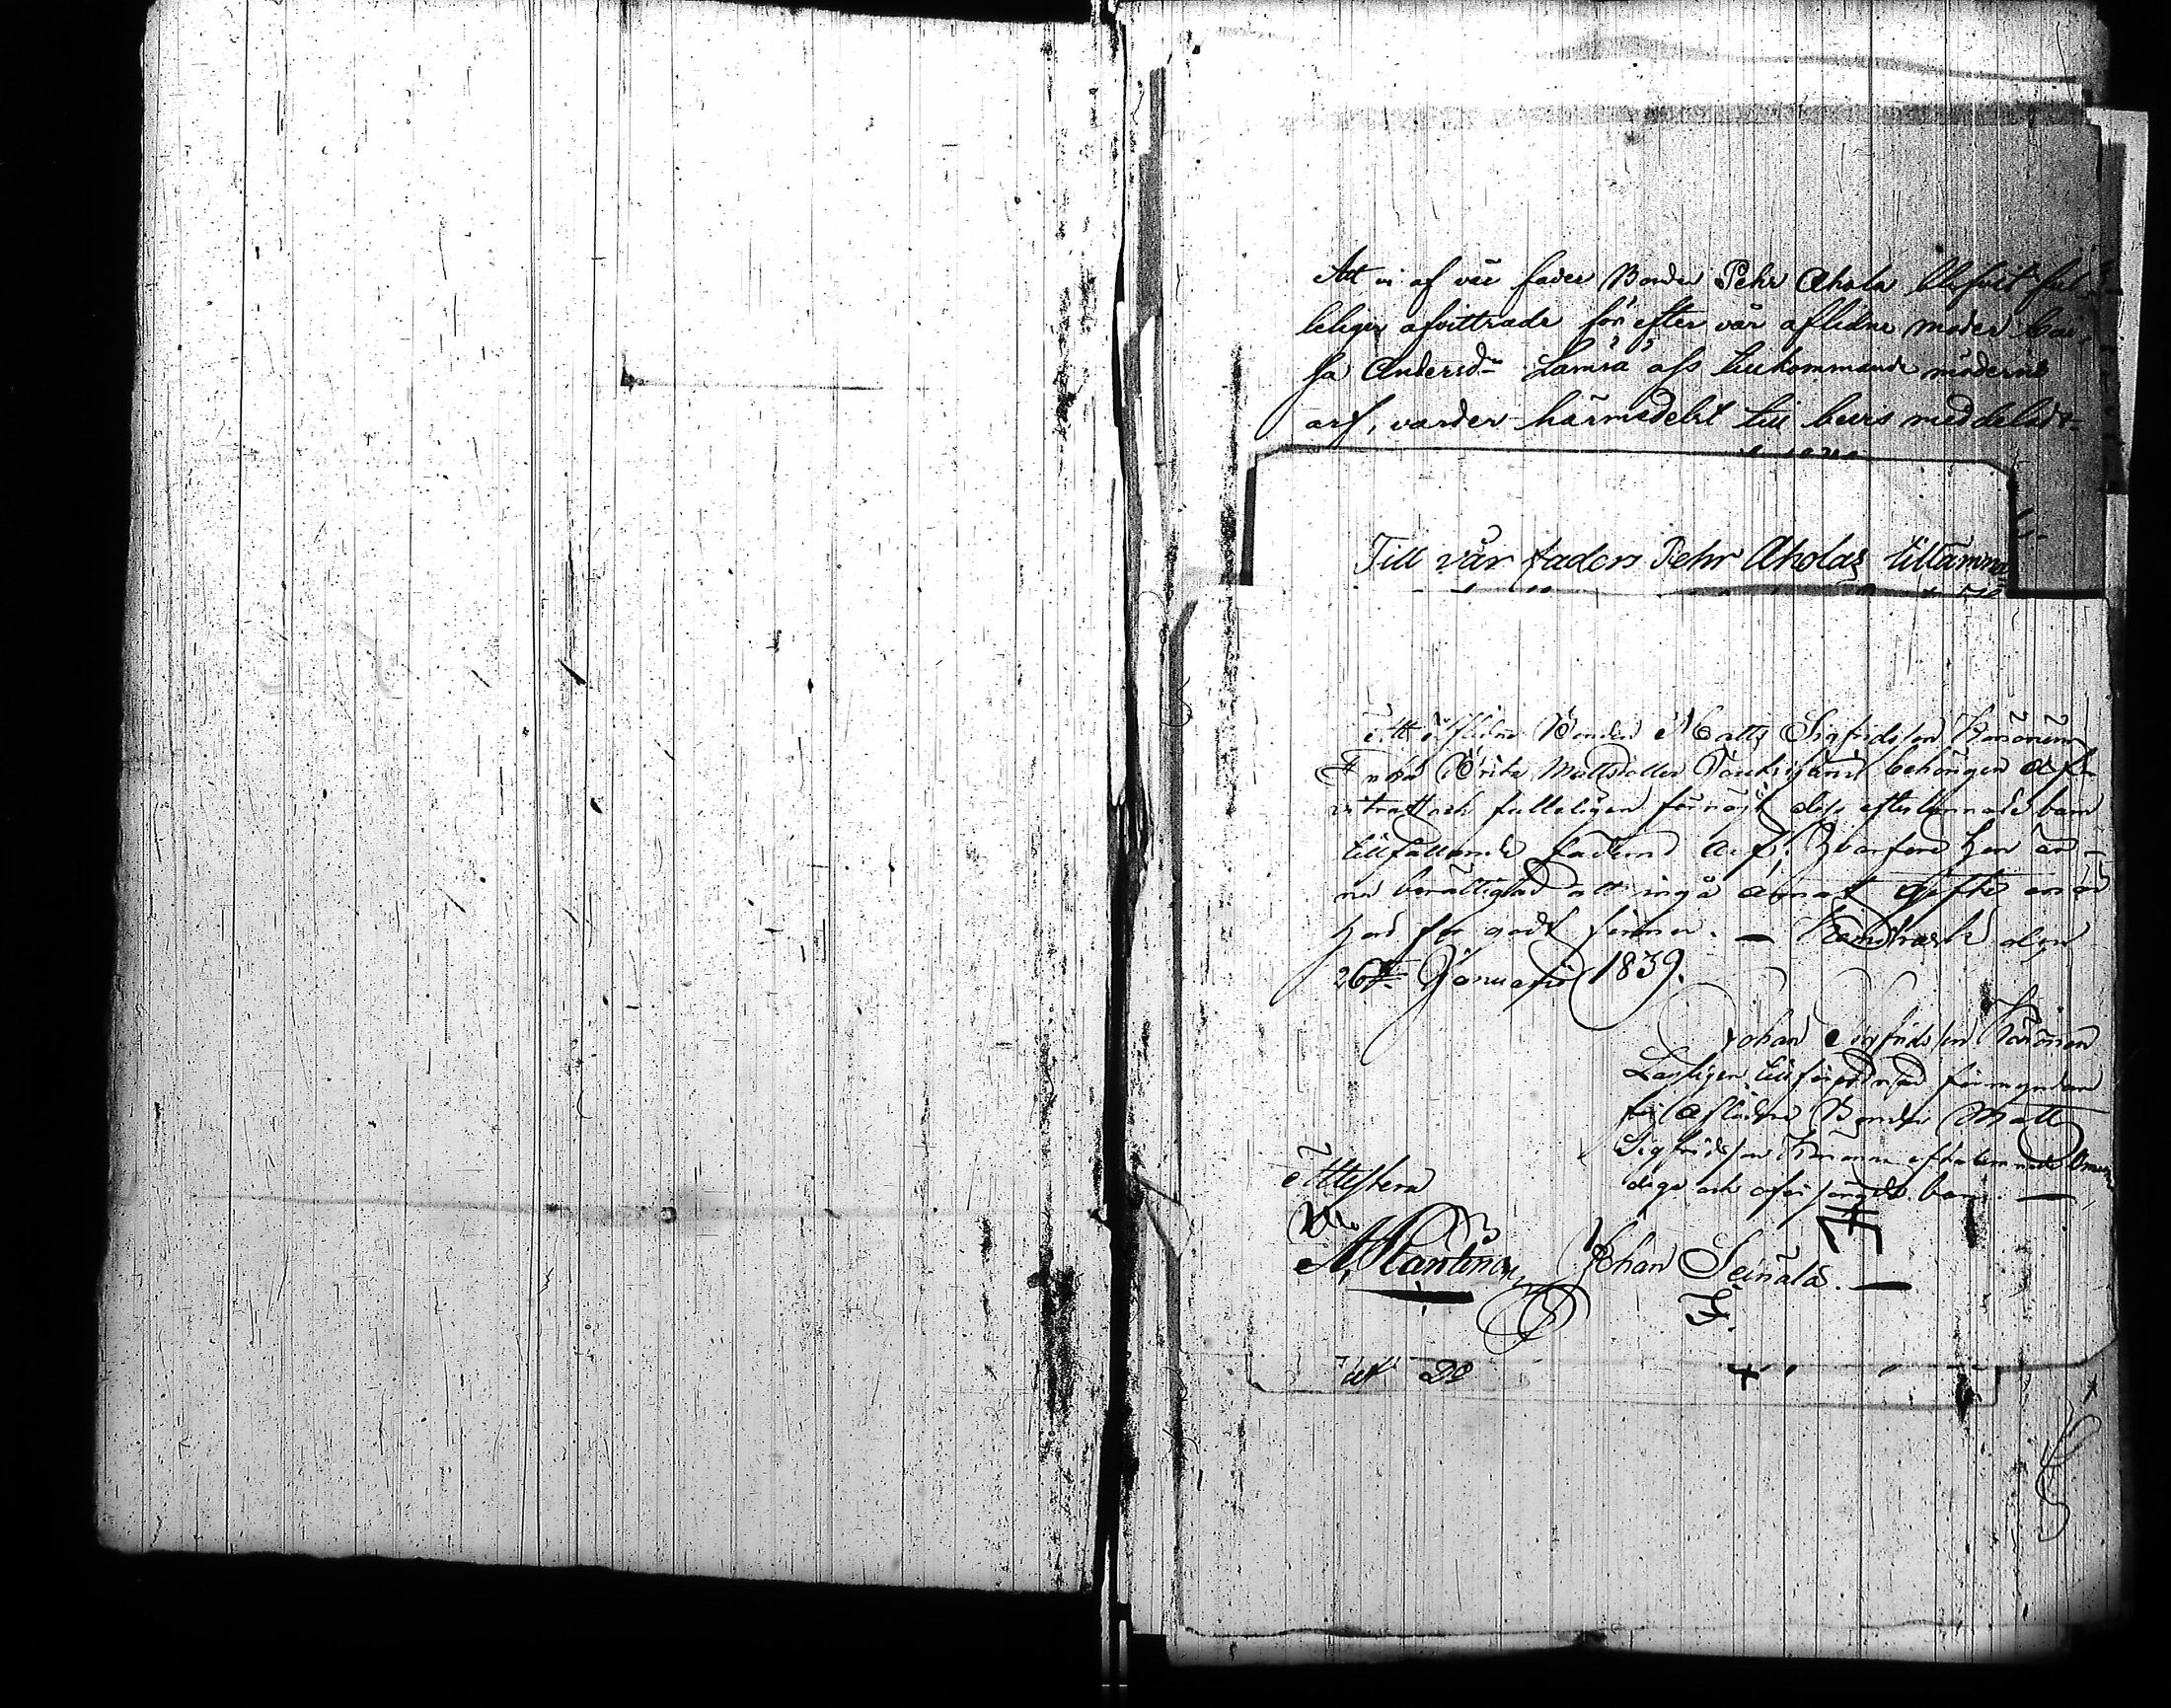 Att vi af vår fader Bonden Pehr Ahola blifvit ful-
leligen afvittrade för efter vår aflidne moder Cai-
sa Andersdr Lamsa åfs tillkommande möderne
arf, varder härmedelst till bevis meddeladt
Till vår faders Pehr Aholas tillämna-
Att aflidne Bonden Matts Sigfridsson Karonens
Enka Brita Mattsdotter behörigen af-
vittrat och fulleligen förnöjt dess efterlemnade barn
tillfallande fäderne arf; hvarföre hon är
nu berättigad att ingå annat gifte
hon för godt finner. — den
26te Januarii 1839.
Johan Sigfridsson Karonen
Lagligen tillförordnad förmyndare
för aflidne Bonden Matts
Sigfridsson Karonens efterlemnade omyn-
diga och oförsörgda barn. —
Attestera
Johan Seinälä. —